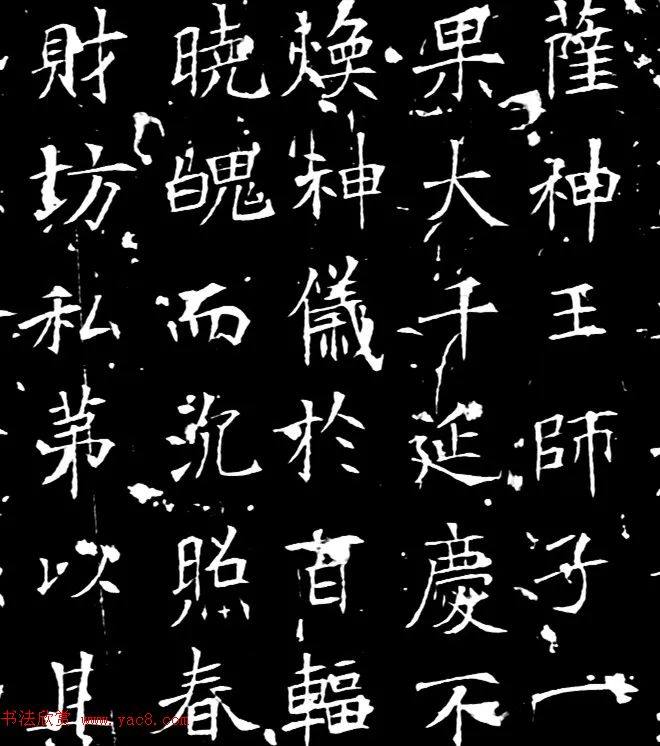 薩神王師子一
果大千延慶不
煥神儀於百輻
曉魄而沉照春
財坊私第以其
书法欣赏 www.yac8.com